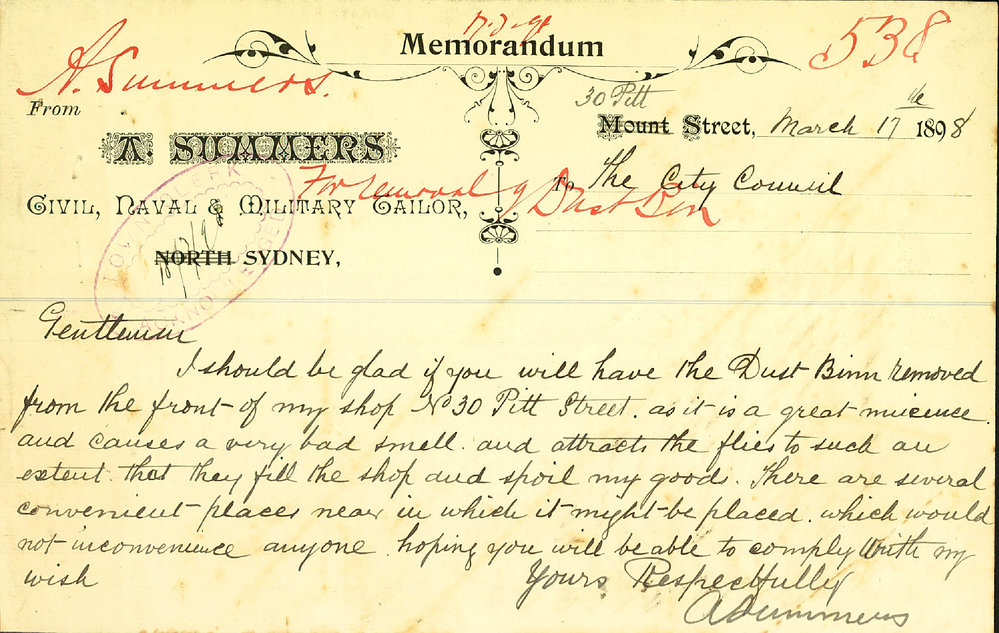 17-3-98
Memorandum
538
A. Summers.
From
30 Pitt
Mount Street, March 17th 1898
A. SUMMERS
For removal of Dust Bin
To The City Council
CIVIL, NAVAL & MILITARY TAILOR,
NORTH SYDNEY,
TOWN CLERK
ACKNOWLEDGED
Gentlemen
I should be glad if you will have the Dust Binn removed
from the front of my shop No 30 Pitt Street. as it is a great nuicence
and causes a very bad smell. and attracts the flies to such an
extent. that they fill the shop and spoil my goods. There are several
convenient places near in which it might be placed. which would
not inconvenience anyone. hoping you will be able to comply With my
wish
Yours Respectfully
A Summers